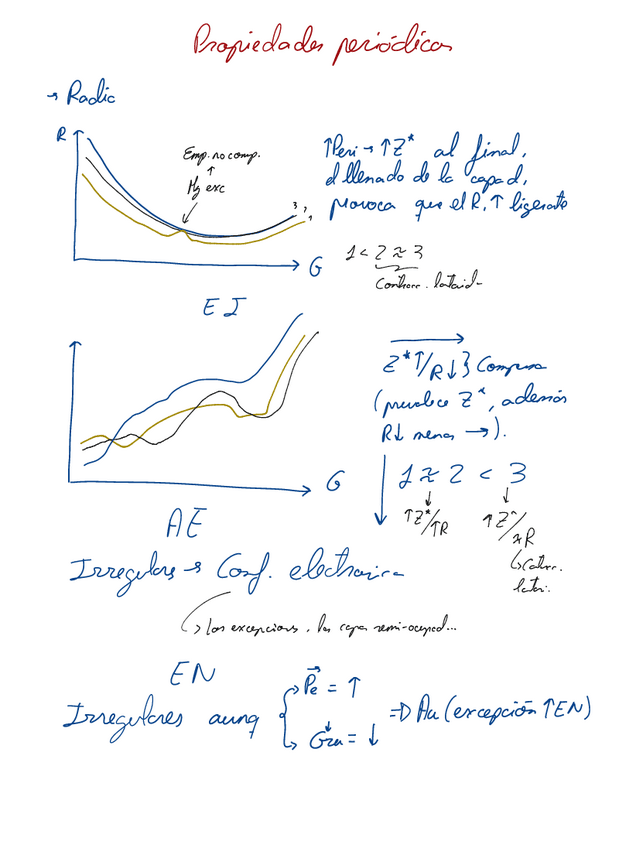 Propiedades periódicas
→ Radio
R
Emp. no comp.
↑
Mg exc
3 2 1
G
↑Peri → ↑Z* al final,
el llenado de la capa d,
provoca que el R, ↑ ligerante
1 < 2 ≈ 3
Contracc. lantánid-
EI
G
Z*↑/R↓} Compensa
(prevalece Z*, además
R↓ menos →).
1 ≈ 2 < 3
↑Z*/↑R
↑Z*/≈R
↳ Contrac.
lantán.
AE
Irregulares → Conf. electrónica
↳ Las excepciones, las capas semi-ocupad...
EN
Irregulares aunq
Pe = ↑
Gru = ↓
⇒ Au (excepción ↑EN)